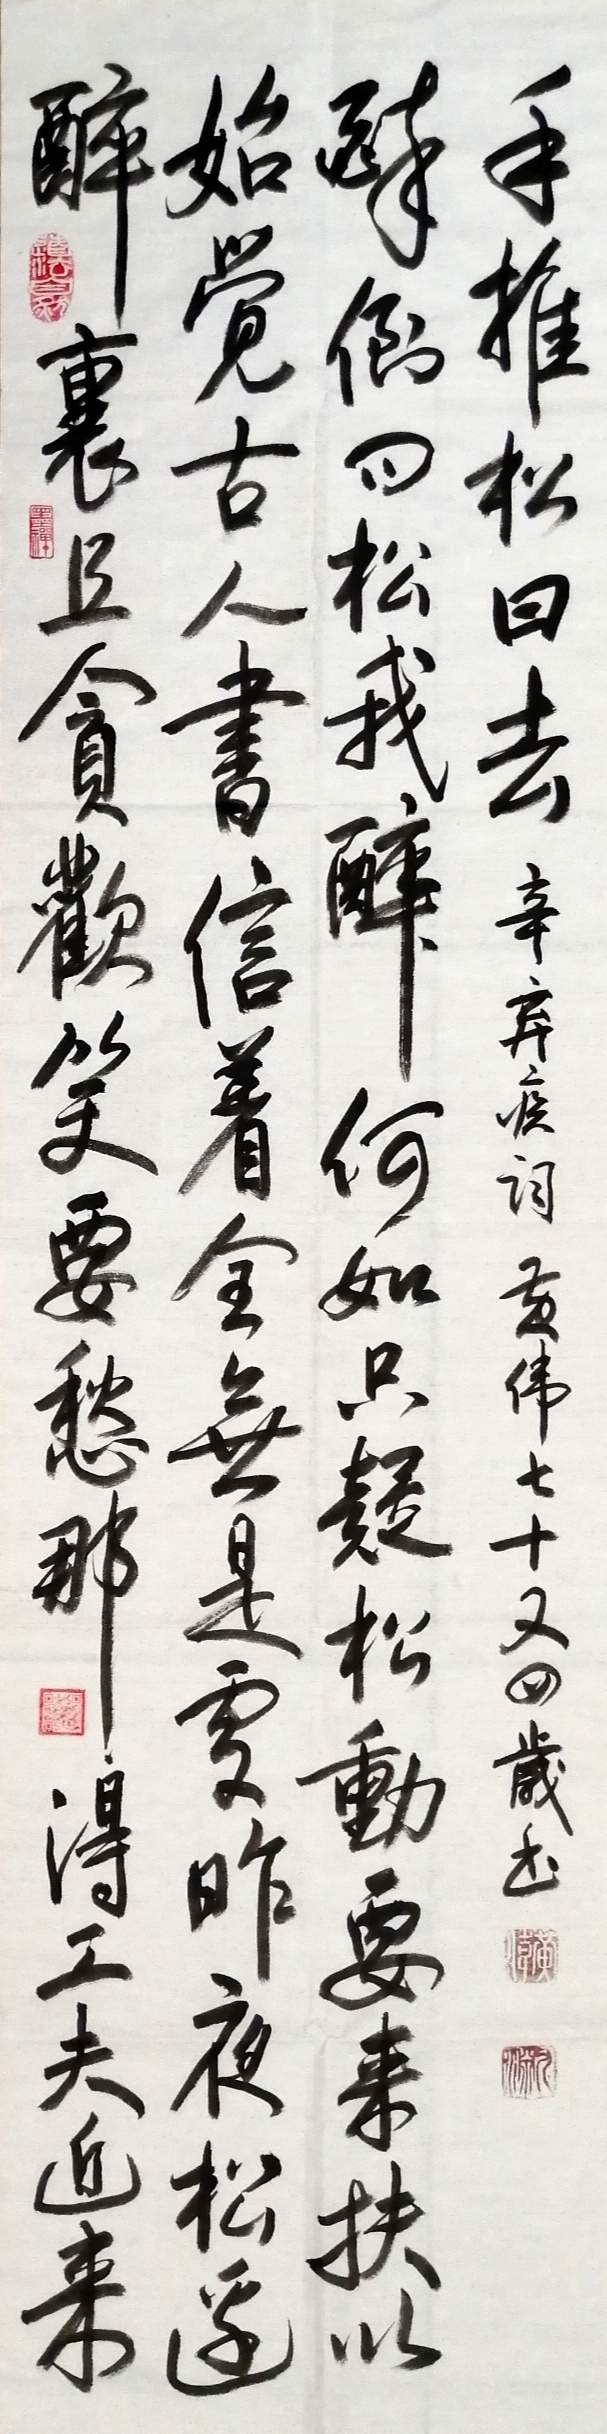 醉裏且貪歡笑要愁那得工夫近来
始覺古人書信着全無是處昨夜松邊
醉倒问松我醉何如只疑松動要来扶以
手推松曰去 辛弃疾词 黄伟七十又四歲书